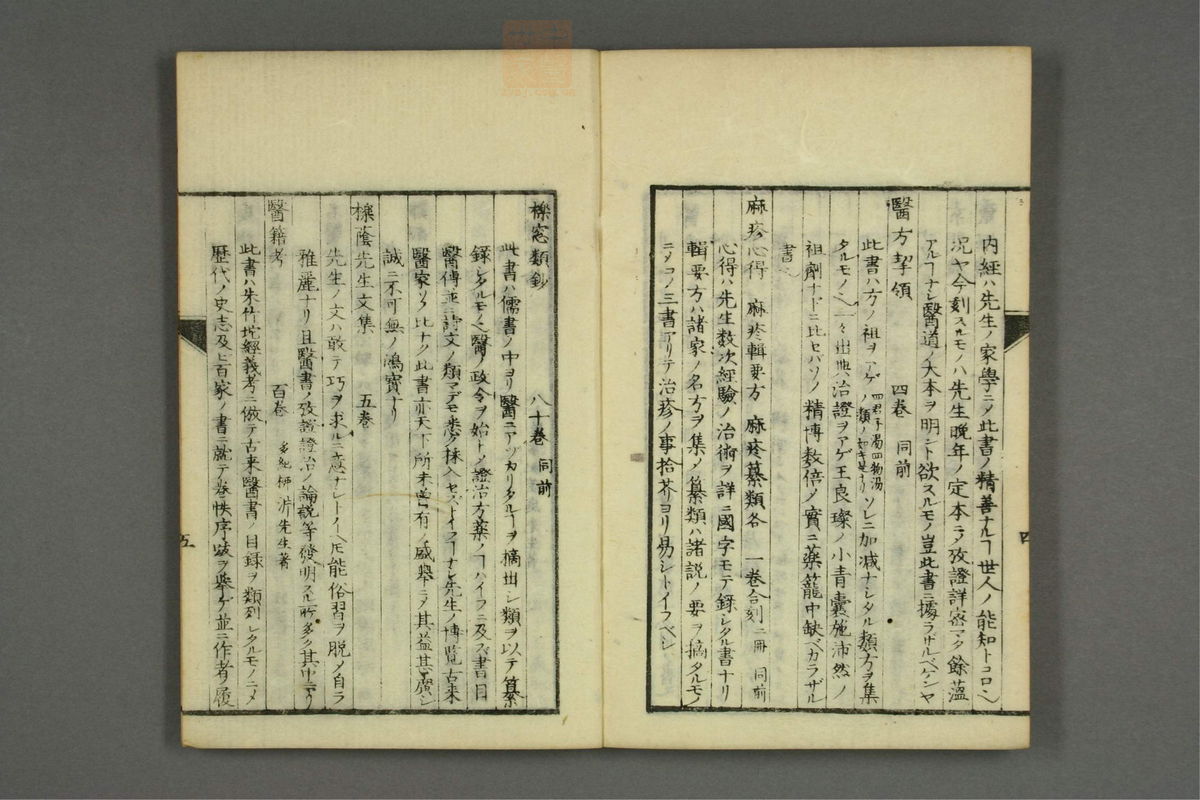 内經ハ先生ノ家學ニメ此書ノ精善ナルヿ世人ノ能知トコロ〱
况ヤ今刻スルモノハ先生晩年ノ定本ニテ攷證詳密マタ餘蘊
アルヿナシ醫道ノ大本ヲ明ント欲スルモノ豈此書ニ據ラザルベケンヤ
醫方挈領 四卷 同前
此書ハ方ノ祖ヲアゲ四君子湯四物湯ノ類ノ如キ是ナリソレニ加减ナシタル類方ヲ集
タルモノ〱一々出典治證ヲアゲ王良璨ノ小青囊施沛然ノ
祖劑ナドニ比セバソノ精博数倍ノ實ニ藥籠中缺ベカラザル
書〱
麻疹心得 麻疹輯要方 麻疹纂類各一卷合刻二冊 同前
心得ハ先生数次經驗ノ治術ヲ詳ニ國字モテ録シタル書ナリ
輯要方ハ諸家ノ名方ヲ集メ纂類ハ諸説ノ要ヲ摘タルモノ
ニメコノ三書アリテ治疹ノ事拾芥ヨリ易シトイフベシ
四
櫟窓類鈔 八十卷 同前
此書ハ儒書ノ中ヨリ醫ニアヅカリタルヿヲ摘出シ類ヲ以テ纂
録シタルモノ〱醫ノ政令ヲ始トメ證治方藥ノヿハイフニ及ズ書目
醫傳並ニ詩文ノ類マデモ悉ク採入セズトイフヿナシ先生ノ博覧古来
醫家ソノ比ナク此書亦天下所未嘗有ノ盛舉ニテ其益甚廣シ
誠ニ不可無ノ鴻寶ナリ
櫟蔭先生文集 五卷
先生ノ文ハ敢テ巧ヲ求ルニ意ナシトイヘ𪜈能俗習ヲ脱メ自ラ
雅麗ナリ且醫書ノ攷證證治ノ論説等發明スル所多ク其中ニアリ
醫籍考 百卷 多紀柳沜先生著
此書ハ朱竹垞經義考ニ倣テ古来醫書ノ目録ヲ類列シタルモノニメ
歴代ノ史志及ヒ百家ノ書ニ就テソノ卷帙序跋ヲ舉ゲ並ニ作者ノ履
五